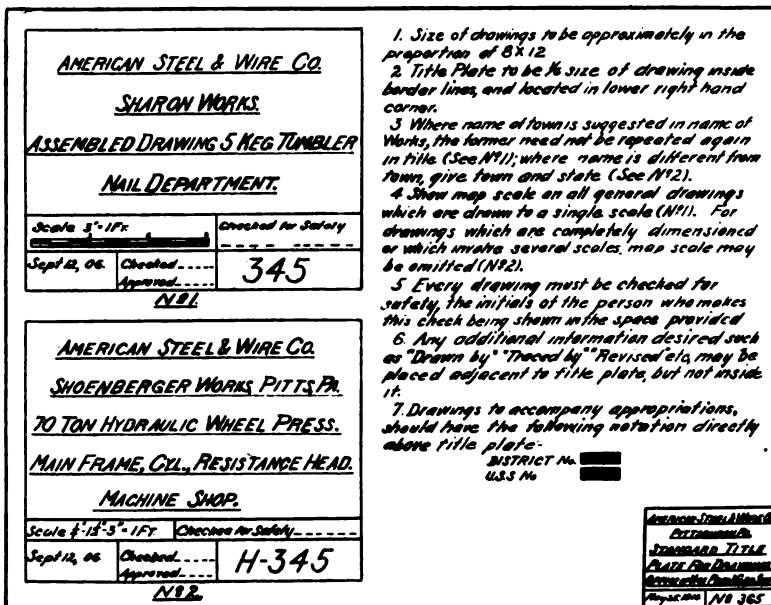 AMERICAN STEEL & WIRE CO.
SHARON WORKS.
ASSEMBLED DRAWING 5 KEG TUMBLER
NAIL DEPARTMENT.
Scale 3"=1FT
Checked for Safety
Sept 12, 06.
Checked
Approved
345
Nº1.
AMERICAN STEEL & WIRE CO.
SHOENBERGER WORKS, PITTS, PA.
70 TON HYDRAULIC WHEEL PRESS.
MAIN FRAME, CYL., RESISTANCE HEAD.
MACHINE SHOP.
Scale 1½"-3"=1FT
Checked for Safety
Sept 12, 06
Checked
Approved
H-345
Nº2.
1. Size of drawings to be approximately in the
proportion of 8X12
2 Title Plate to be size of drawing inside
border lines, and located in lower right hand
corner.
3 Where name of town is suggested in name of
Works, the former need not be repeated again
in title (See Nº1); where name is different from
town, give town and state (See Nº2).
4 Show map scale on all general drawings
which are drawn to a single scale (Nº1). For
drawings which are completely dimensioned
or which involve several scales, map scale may
be omitted (Nº2).
5 Every drawing must be checked for
safety, the initials of the person who makes
this check being shown in the space provided
6. Any additional information desired such
as "Drawn by" "Traced by" "Revised" etc, may be
placed adjacent to title plate, but not inside
it.
7. Drawings to accompany appropriations,
should have the following notation directly
above title plate-
DISTRICT No.
U.S.S No
AMERICAN STEEL & WIRE CO
PITTSBURGH PA.
STANDARD TITLE
PLATE FOR DRAWINGS
Nº 365